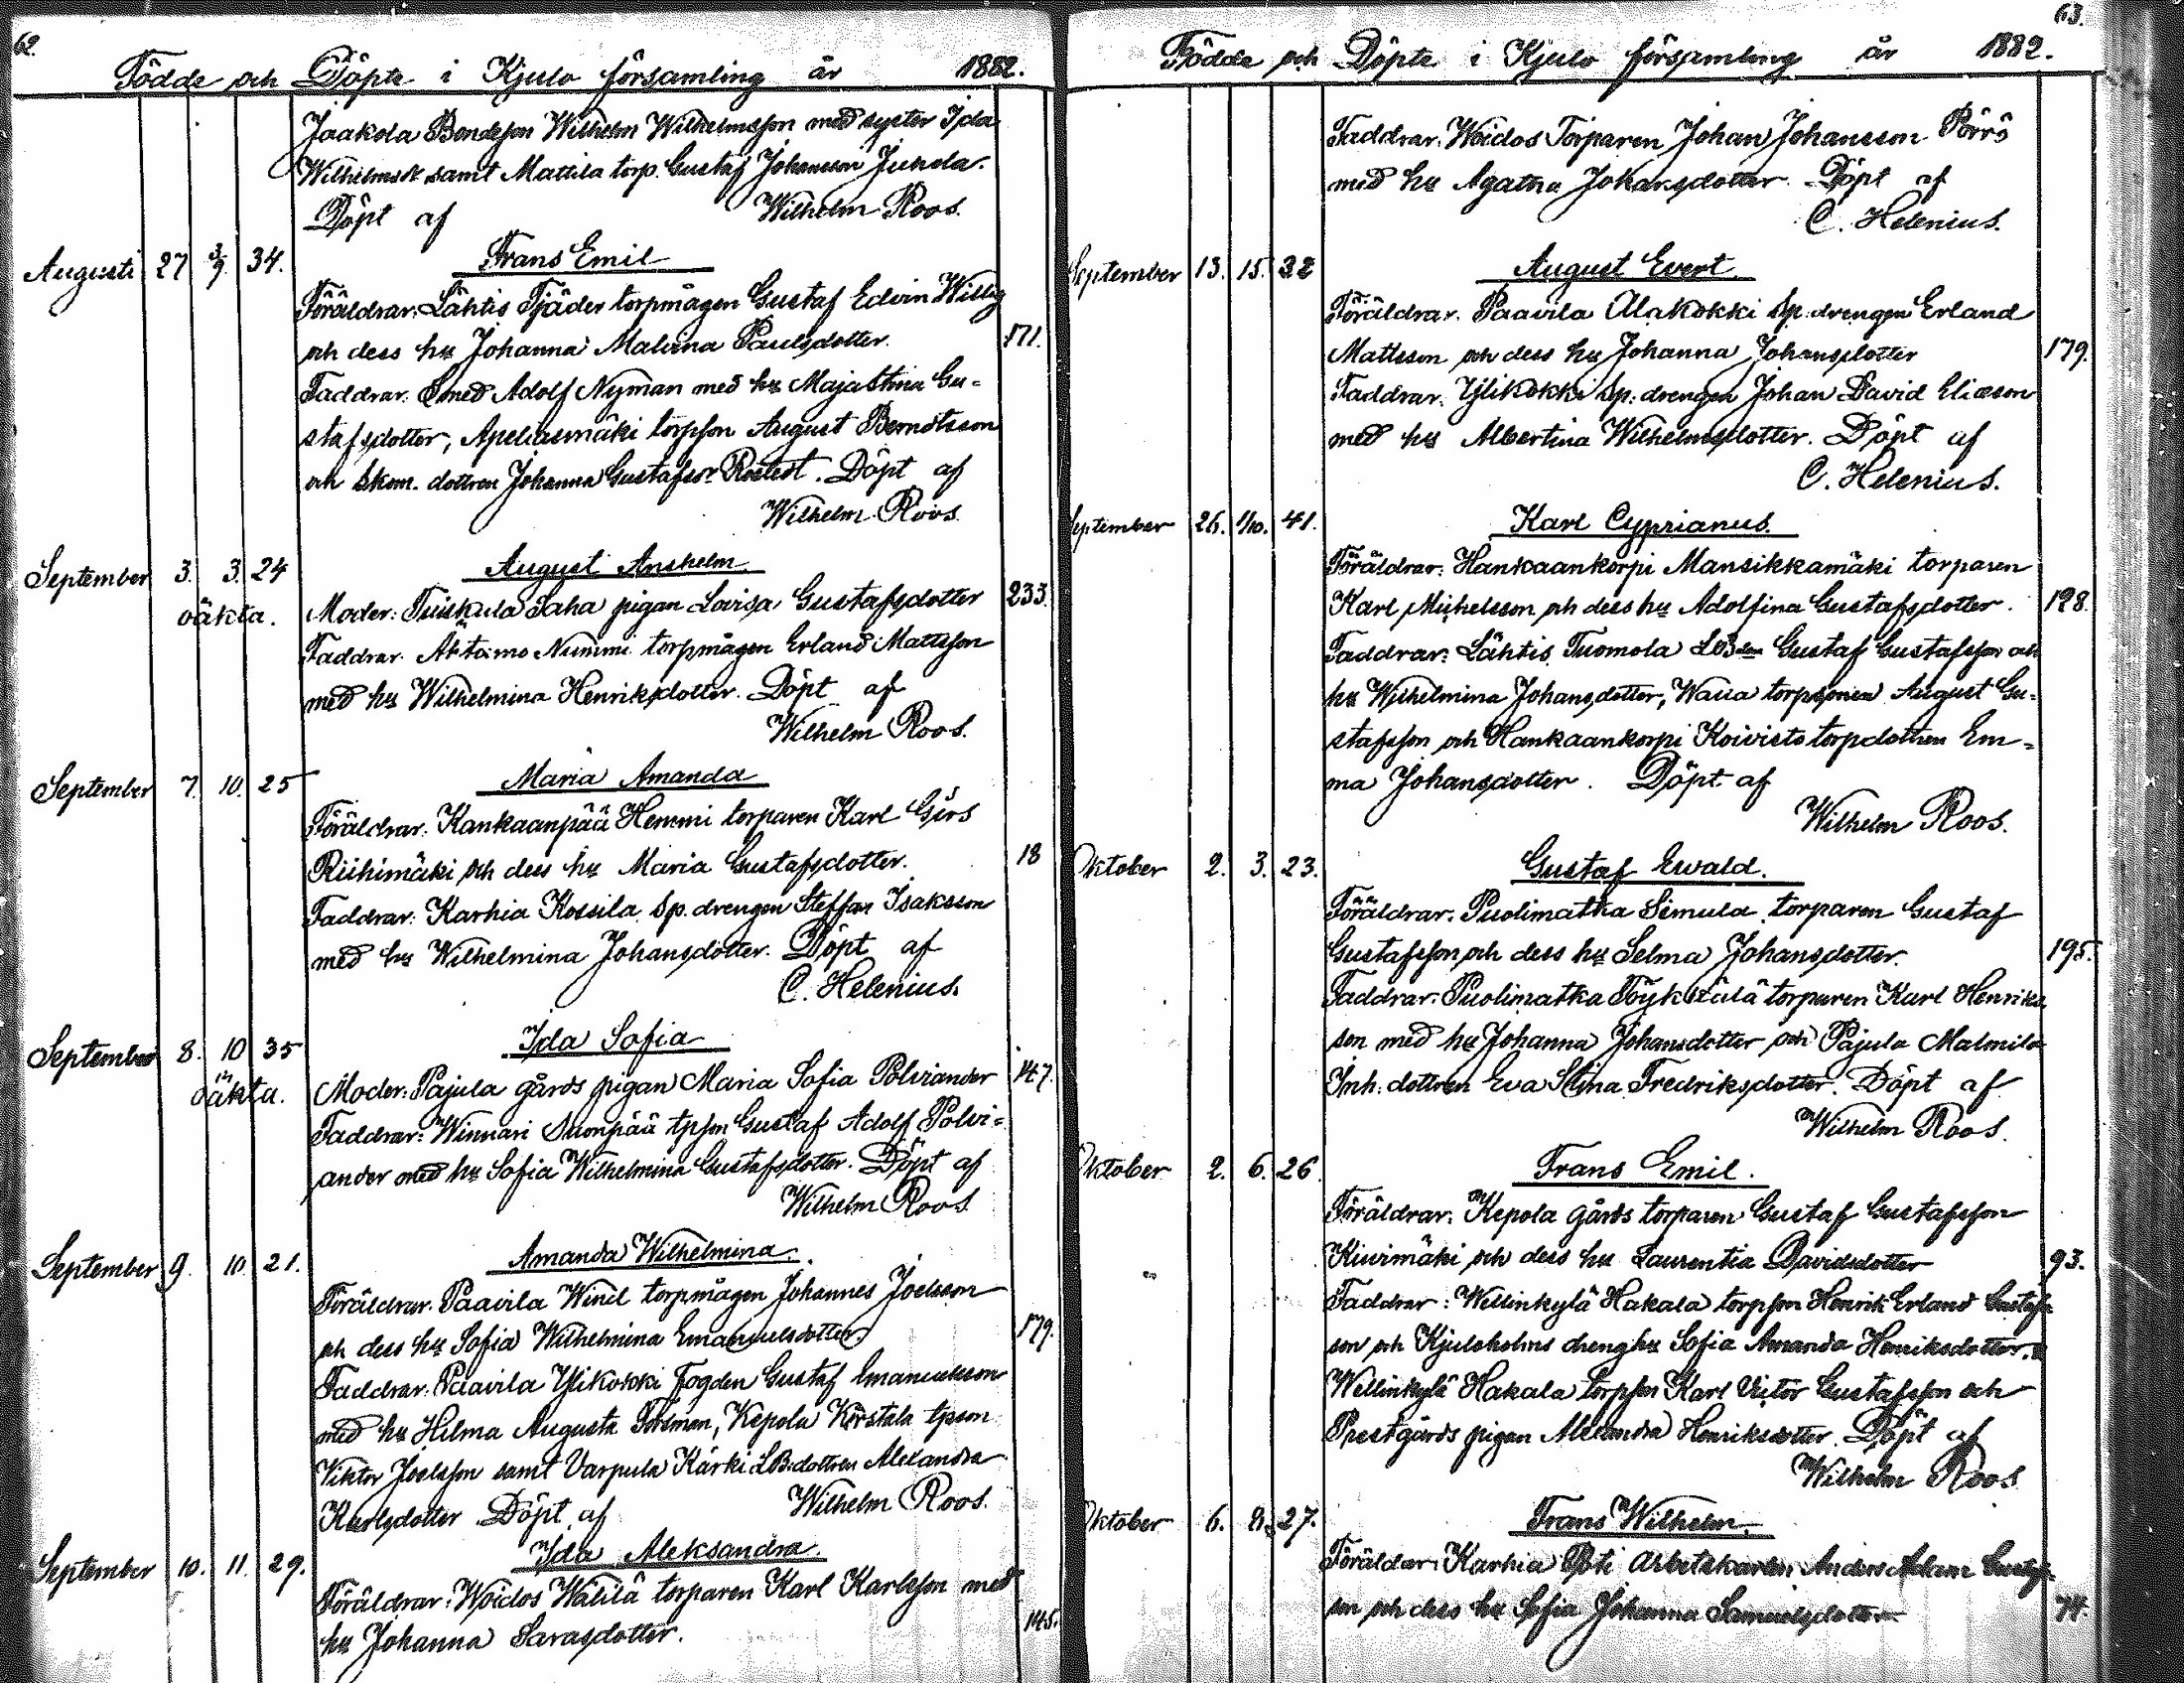 62.
Födde och Döpte i Kjulo församling år 1882.
Jaakola Bondeson Wilhelm Wilhelmsson med syster Ida
Wilhelmsdr samt Mattila torp. Gustaf Johansson Junola.
Döpt af Wilhelm Roos.
Augusti 27 3/9. 34. Frans Emil
Föräldrar: Lähtis Tjäder torpmågen Gustaf Edvin Willig
och dess hu Johanna Malvina Paulsdotter. 171.
Faddrar: Smed Adolf Nyman med hu Maja Stina Gu-
stafsdotter, Apeliasmäki torpson August Berndtsson
och Skom. dottren Johanna Gustafsdr Rostedt. Döpt af
Wilhelm Roos.
September 3. 3. 24 August Anshelm.
oäkta. Moder: Tuiskula Saha pigan Lovisa Gustafsdotter 233.
Faddrar: Aktamo Nummi torpmågen Erland Mattsson
med hu Wilhelmina Henriksdotter. Döpt af
Wilhelm Roos.
September 7. 10. 25 Maria Amanda
Föräldrar: Kankaanpää Hemmi torparen Karl Girs
Riihimäki och dess hu Maria Gustafsdotter. 18
Faddrar: Karhia Kossila Sp. drengen Steffan Isaksson
med hu Wilhelmina Johansdotter. Döpt af
C. Helenius.
September 8. 10 35 Ida Sofia
oäkta. Moder: Pajula gårds pigan Maria Sofia Polviander 147.
Faddrar: Winnari Suonpää tpson Gustaf Adolf Polvi-
ander med hu Sofia Wilhelmina Gustafsdotter. Döpt af
Wilhelm Roos.
September 9. 10. 21. Amanda Wilhelmina.
Föräldrar: Paavila Winil torpmågen Johannes Joelsson
och dess hu Sofia Wilhelmina Emanuelsdotter. 179.
Faddrar: Paavila Ylikokki fogden Gustaf Emanuelsson
med hu Hilma Augusta Forsman, Kepola Körstala tpson
Viktor Joelsson samt Varpula Kärki LB:dottren Alexandra
Karlsdotter Döpt af Wilhelm Roos.
September 10. 11. 29. Ida Aleksandra.
Föräldrar: Woidos Wälilä torparen Karl Karlsson med
hu Johanna Sarasdotter. 145.
63.
Födde och Döpte i Kjulo församling år 1882.
Faddrar: Woidos Torparen Johan Johansson Pörrö
med hu Agatha Johansdotter. Döpt af
C. Helenius.
September 13. 15. 32 August Evert.
Föräldrar: Paavila Alakokki Sp. drengen Erland
Mattsson och dess hu Johanna Johansdotter 179.
Faddrar: Ylikokki Sp: drengen Johan David Eliasson
med hu Albertina Wilhelmsdotter. Döpt af
C. Helenius.
September 26. 1/10. 41. Karl Cyprianus.
Föräldrar: Hankaankorpi Mansikkamäki torparen
Karl Michelsson och dess hu Adolfina Gustafsdotter. 128.
Faddrar: Lähtis Tuomola LB Gustaf Gustafsson och
hu Wilhelmina Johansdotter, August Gu-
stafsson och Hankaankorpi Koivisto torpdottren Em-
ma Johansdotter. Döpt af
Wilhelm Roos.
Oktober 2. 3. 23. Gustaf Ewald.
Föräldrar: Puolimatka Simula torparen Gustaf
Gustafsson och dess hu Selma Johansdotter. 195.
Faddrar: Puolimatka Töykkälä torparen Karl Henriks-
son med hu Johanna Johansdotter och Pajula Malmila
Inh. dottren Eva Stina Fredriksdotter. Döpt af
Wilhelm Roos.
Oktober 2. 6. 26. Frans Emil.
Föräldrar: Kepola gårds torparen Gustaf Gustafsson
Kiurimäki och dess hu Laurentia Davidsdotter 93.
Faddrar: Wellinkylä Hakala torpson Henrik Erland Gustafs-
son och Kjuloholms dreng hu Sofia Amanda Henriksdotter.
Wellinkylä Hakala torpson Karl Victor Gustafsson och
Prestgårds pigan Alexandra Henriksdotter. Döpt af
Wilhelm Roos.
Oktober 6. 8. 27. Frans Wilhelm.
Föräldar: Karhia Poti Arbetskarlen Anders Adam Gustafs-
son och dess hu Sofia Johanna Samuelsdotter 74.